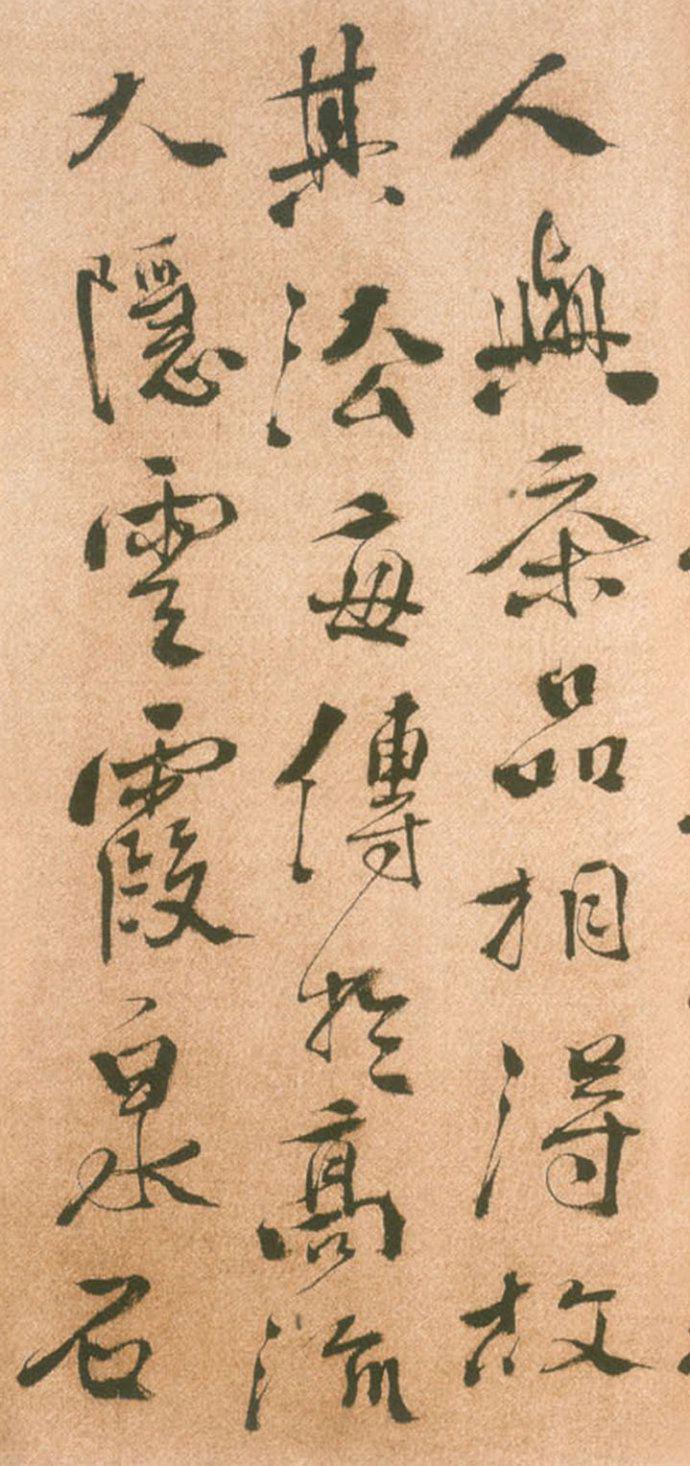 人與茶品相得故
其法每傳於高流
大隱雲霞泉石